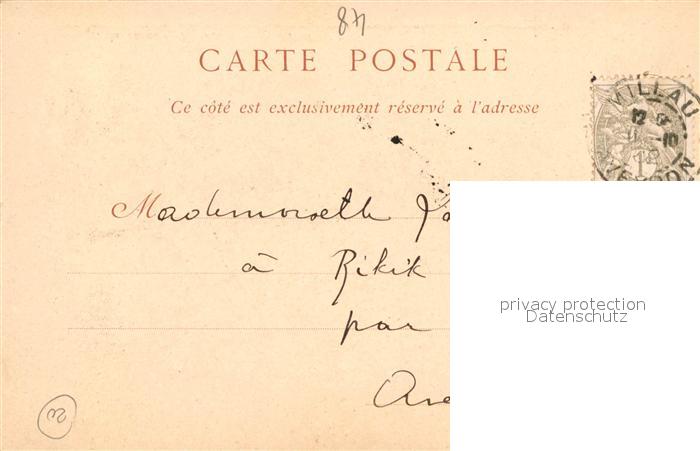 48
CARTE POSTALE
Ce côté est exclusivement réservé à l'adresse
MILLAU
12
10
1c
Mademoiselle
à Rikik
par
privacy protection
Datenschutz